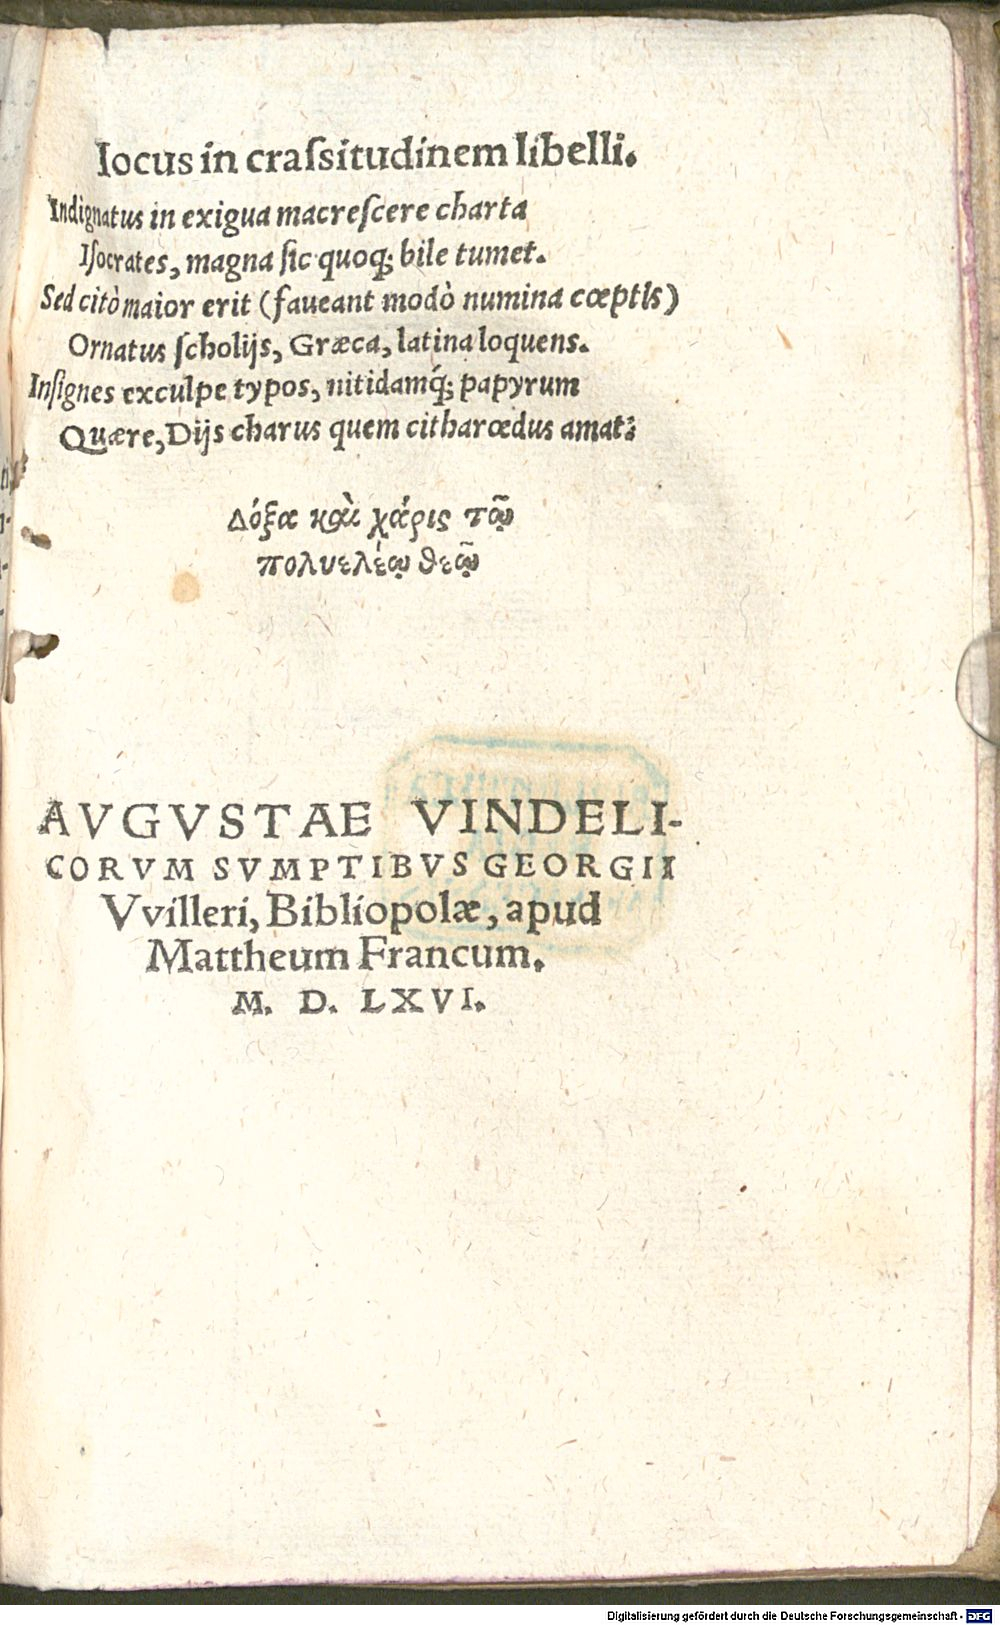 Iocus in craſsitudinem libelli.
Indignatus in exigua macreſcere charta
Iſocrates, magna ſic quoq; bile tumet.
Sed citò maior erit (faueant modò numina cœptis)
Ornatus ſcholijs, Græca, latina loquens.
Inſignes exculpe typos, nitidamq́; papyrum
Quære, Dijs charus quem citharœdus amat:
Δόξα καὶ χάρις τῷ
πολυελέῳ θεῷ
AVGVSTAE VINDELI-
CORVM SVMPTIBVS GEORGII
Vvilleri, Bibliopolæ, apud
Mattheum Francum.
M. D. LXVI.
Digitalisierung gefördert durch die Deutsche Forschungsgemeinschaft - DFG